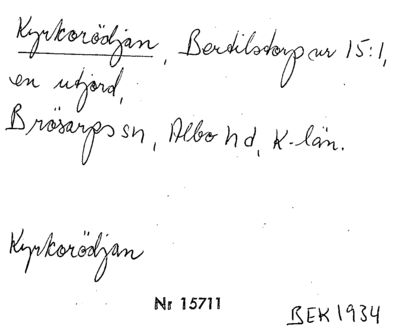 Kyrkorödjan, Bertilstorp nr 15:1,
en utjord,
Brösarps sn, Albo hd, K-län.
Kyrkorödjan
Nr 15711
BEK 1934